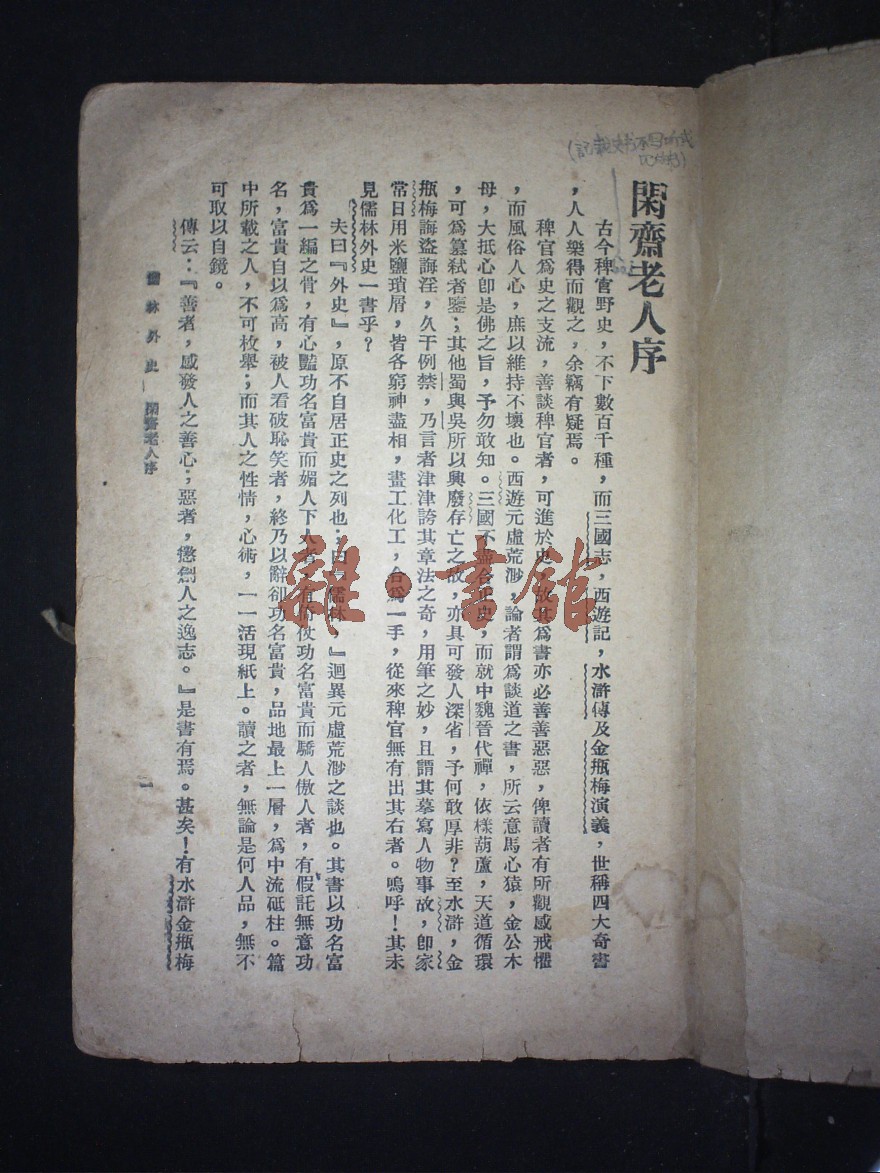 閑齋老人序
古今稗官野史，不下數百千種，而三國志，西遊記，水滸傳及金瓶梅演義，世稱四大奇書
，人人樂得而觀之，余竊有疑焉。
稗官爲史之支流，善談稗官者，可進於史，故其爲書亦必善善惡惡，俾讀者有所觀感戒懼
，而風俗人心，庶以維持不壞也。西遊元虛荒渺，論者謂爲談道之書，所云意馬心猿，金公木
母，大抵心卽是佛之旨，予勿敢知。三國不盡合正史，而就中魏晉代禪，依樣葫蘆，天道循環
，可爲篡弒者鑒；其他蜀與吳所以興廢存亡之故，亦具可發人深省，予何敢厚非？至水滸，金
瓶梅誨盜誨淫，久干例禁，乃言者津津誇其章法之奇，用筆之妙，且謂其摹寫人物事故，卽家
常日用米鹽瑣屑，皆各窮神盡相，畫工化工，合爲一手，從來稗官無有出其右者。嗚呼！其未
見儒林外史一書乎？
夫曰『外史』，原不自居正史之列也；曰『儒林，』迥異元虛荒渺之談也。其書以功名富
貴爲一編之骨，有心豔功名富貴而媚人下人者，有倚仗功名富貴而驕人傲人者，有假託無意功
名，富貴自以爲高，被人看破恥笑者，終乃以辭卻功名富貴，品地最上一層，爲中流砥柱。篇
中所載之人，不可枚舉；而其人之性情，心術，一一活現紙上。讀之者，無論是何人品，無不
可取以自鏡。
傳云：『善者，感發人之善心；惡者，懲創人之逸志。』是書有焉。甚矣！有水滸金瓶梅
儒林外史 閑齋老人序 一
雜·書館